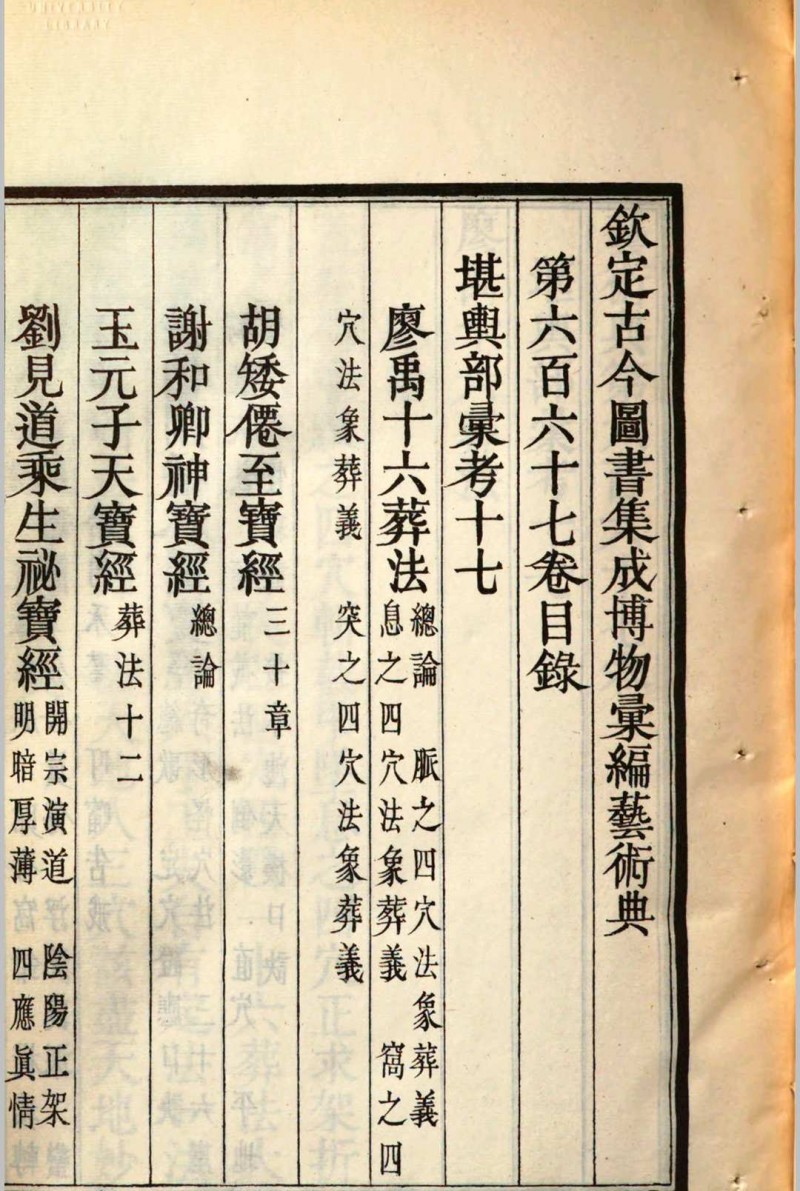 欽定古今圖書集成博物彙編藝術典
第六百六十七卷目錄
堪輿部彙考十七
廖禹十六葬法 總論 脈之四穴法象葬義
息之四穴法象葬義 窩之四
穴法象葬義 突之四穴法象葬義
胡矮僊至寶經 三十章
謝和卿神寶經 總論
玉元子天寶經 葬法十二
劉見道乘生祕寶經 開宗演道 陰陽正架
明暗厚薄 四應眞情